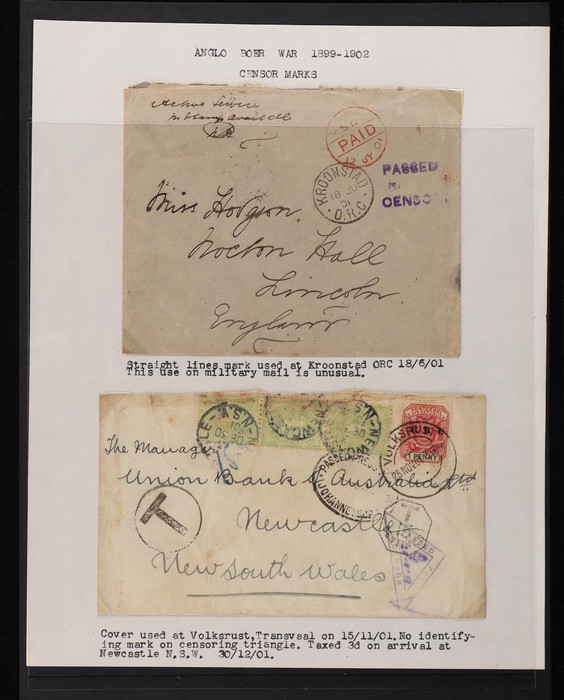 ANGLO BOER WAR 1899-1902
CENSOR MARKS
Active Service
No Stamp available
PAID
12 JY 0
KROONSTAD
18 JU
01
O.R.C.
PASSED
CENSO
Miss Hodgson.
Nocton Hall
Lincoln.
England
Straight lines mark used at Kroonstad ORC 18/6/01
This use on military mail is unusual.
NEWCASTLE-N.S.W
VOLKSRUST
1 PENNY
PASSED PRESS
JOHANNESBURG
The Manager
Union Bank of Australia Ltd
Newcastle
New South Wales
T
Cover used at Volksrust,Transvaal on 15/11/01.No identify-
ing mark on censoring triangle. Taxed 3d on arrival at
Newcastle N.S.W. 30/12/01.